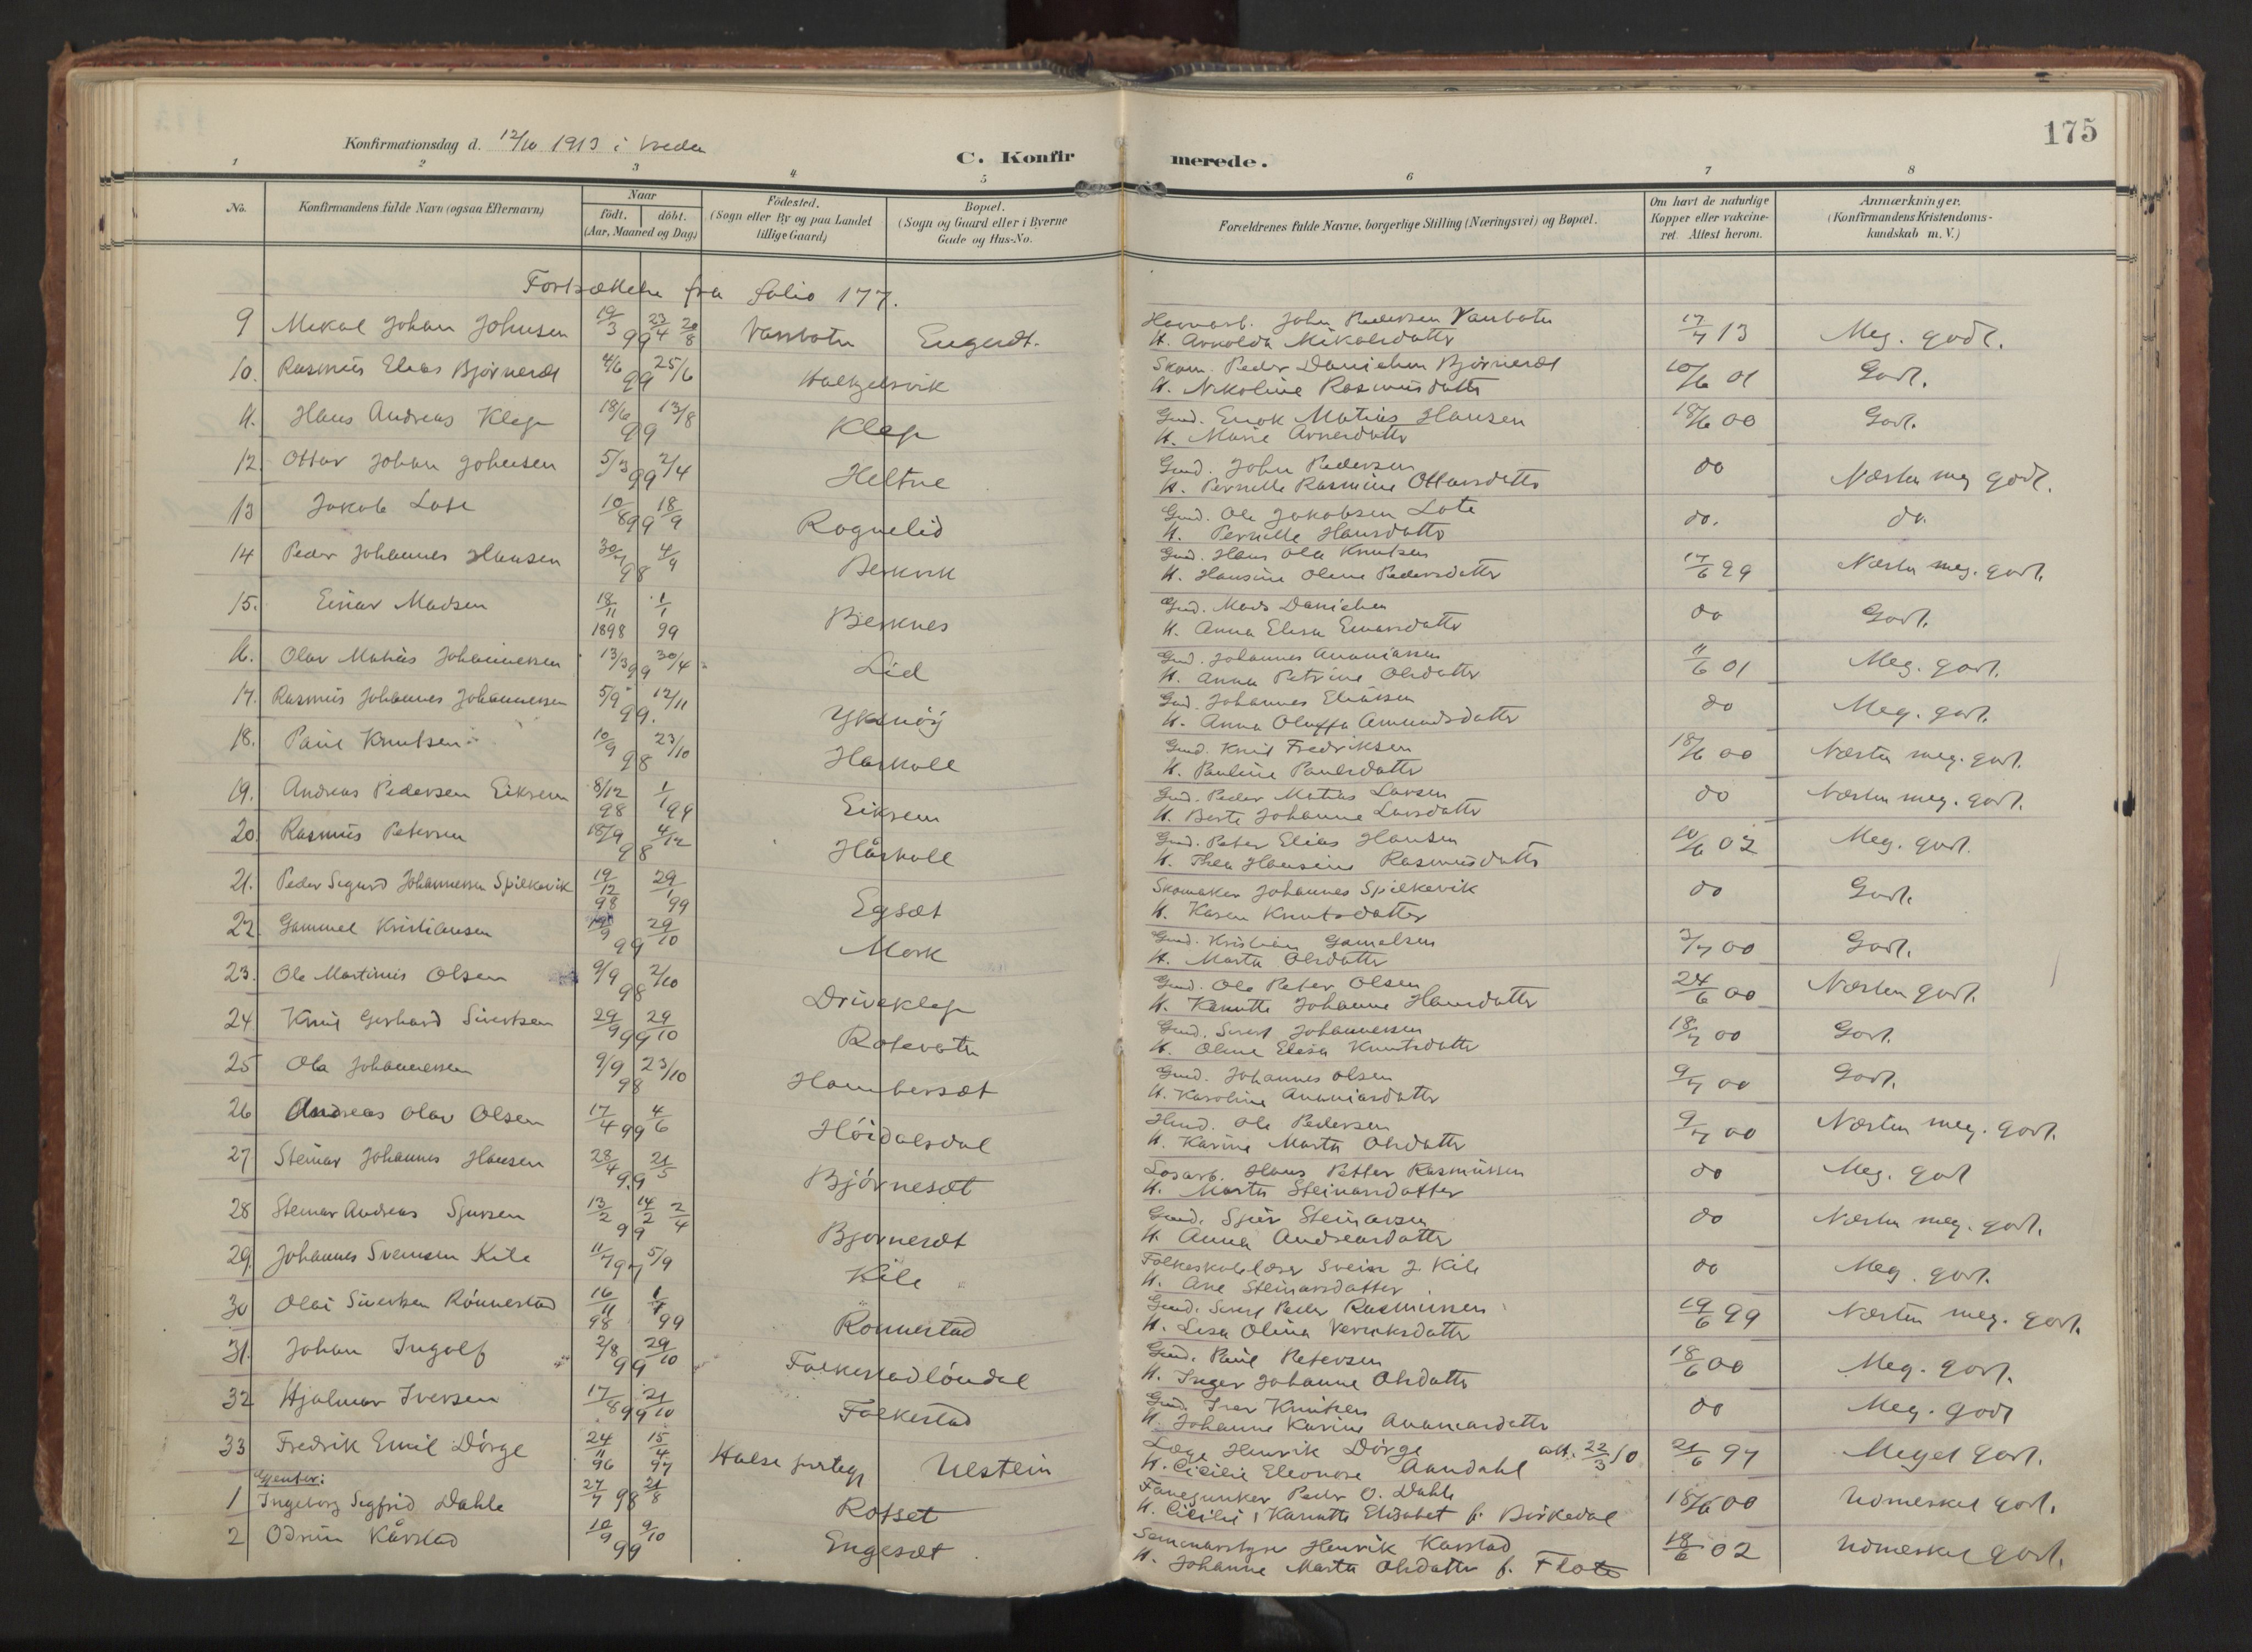 175
Konfirmationsdag d. 12/10 1913 i
C. Konfir merede.
1 2 3 4 5 6 7 8
No.
Konfirmandens fulde Navn (ogsaa Efternavn)
Naar
født. døbt.
(Aar, Maaned og Dag)
Fødested.
(Sogn eller By og paa Landet
tillige Gaard)
Bopæl.
(Sogn og Gaard eller i Byerne
Gade og Hus-No.
Forældrenes fulde Navne, borgerlige Stilling (Næringsvei) og Bopæl.
Om havt de naturlige
Kopper eller vakcine-
ret. Attest herom.
Anmærkninger.
(Konfirmandens Kristendoms-
kundskab m. V.)
Fortsættelse fra folio 177.
9 Mikal Johan Johnsen 19/3 99 23/4 20/8 Vassbotn John Pedersen Vassbotn 17/7 13 Meg. godt.
H. Arnolda Mikalsdatter
10. Rasmus Elias Bjørneset 4/6 99 25/6 Halkjelsvik Skom. Peder Danielsen Bjørneset 10/6 01 Godt.
H. Nikoline Rasmusdatter
11. Hans Andreas Klep 18/6 99 13/8 Klep Gmd. Enok Matias Hansen 18/6 00 Godt.
H. Marie Arnesdatter
12. Ottar Johan Johnsen 5/3 99 2/4 Heltne Gmd. John Pedersen do Næsten meg godt.
H. Pernille Rasmine Ottarsdatter
13 Jakob Lote 10/8 99 18/9 Rognelid Gmd. Ole Jakobsen Lote do. do.
H. Pernille Hansdatter
14 Peder Johannes Hansen 30/7 98 4/9 Berkvik Gmd. Hans Ola Knutsen 17/6 99 Næsten meg. godt.
H. Hansine Oline Pedersdatter
15. Einar Madsen 18/11 1898 1/1 99 Bjerknes Gmd. Mads Danielsen do Godt.
H. Anna Elisa Einarsdatter
16. Olav Matias Johannessen 13/3 99 30/4 Lid Gmd. Johannes Ananiassen 11/6 01 Meg. godt.
H. Anna Petrine Olsdatter
17. Rasmus Johannes Johannessen 5/9 99. 12/11 Gmd. Johannes Eliassen do Meg. godt.
H. Anna Oluffa Amundsdatter
18. Paul Knutsen 10/9 98 23/10 Haskoll Gmd. Knut Fredriksen 18/6 00 Næsten meg. godt.
H. Pauline Paulsdatter
19. Andreas Pedersen Eiksem 8/12 98 1/1 99 Eiksem Gmd. Peder Matias Larsen do Næsten meg. godt.
H. Berte Johanne Larsdatter
20. Rasmus Petersen 18/9 98 4/12 Håskoll Gmd. Peter Elias Hansen 10/6 02 Meg. godt.
H. Thea Hansine Rasmusdatter
21. Peder Sigurd Johannessen Spilkevik 19/12 98 29/1 99 Egset Skomaker Johannes Spilkevik do Godt.
H. Karen Knutsdatter
22. Gammel Kristiansen 99 29/10 Mork Gmd. Kristian Gamelsen 3/7 00 Godt.
H. Marta Olsdatter
23. Ole Martinus Olsen 9/9 98 2/10 Driveklep Gmd. Ole Peter Olsen 24/6 00 Næsten godt.
H. Johanne Hansdatter
24. Knut Gerhard Sivertsen 29/9 99 29/10 Rotevatn Gmd. Sivert Johannessen 18/7 00 Godt.
H. Oline Elisa Knutsdatter
25 Ola Johannessen 9/9 98 23/10 Hambersæt Gmd. Johannes Olsen 9/7 00 Godt.
H. Karoline Ananiasdatter
26 Andreas Olav Olsen 17/4 99 4/6 Høidalsdal Hmd. Ole Pedersen 9/7 00 Næsten meg. godt.
H. Karine Marta Olsdatter
27 Steinar Johannes Hansen 28/4 99 21/5 Bjørnesæt Losarb. Hans Petter Rasmussen do Meg. godt
H. Marta Steinarsdatter
28 Steinar Andreas Sjursen 13/2 99 14/2 2/4 Bjørneset Gmd. Sjur Steinarsen do Næsten meg. godt.
H. Anna Andreasdatter
29. Johannes Sveinsen Kile 11/7 97 5/9 Kile Folkeskolelærer Svein J. Kile do Meg. godt.
H. Ane Steinarsdatter
30 Olai Sivertsen Rønnestad 16/11 98 1/1 99 Rønnestad Gmd. Sivert Peder Rasmussen 19/6 99 Næsten meg. godt.
H. Lisa Olina
31. Johan Ingolf 2/8 99 29/10 Folkestadløndal Gmd. Paul Petersen 18/6 00 Meg. godt.
H. Inger Johanne Olsdatter
32 Hjalmar Iversen 17/8 99 21/10 Folkestad Gmd. Iver Knutsen do Meg. godt
H. Johanne Karine Ananiasdatter
33 Fredrik Emil Dørge 24/11 96 15/4 97 Halse Ulstein Læge Henrik Dørge att. 22/3 10 21/6 97 Meget godt.
H. Cicilie Eleonore Aandahl
Gjenter:
1 Ingeborg Sigfrid Dahle 27/7 98 21/8 Rotset Fanejunker Peder O. Dahle 18/6 00 Udmerket godt.
H. Cicilie Elisabet f. Birkedal
2 Odrun Kårstad 10/9 99 9/10 Engeset Henrik Kårstad 18/6 02 Udmerket godt.
H. Johanne Marta Olsdatter f. Flote